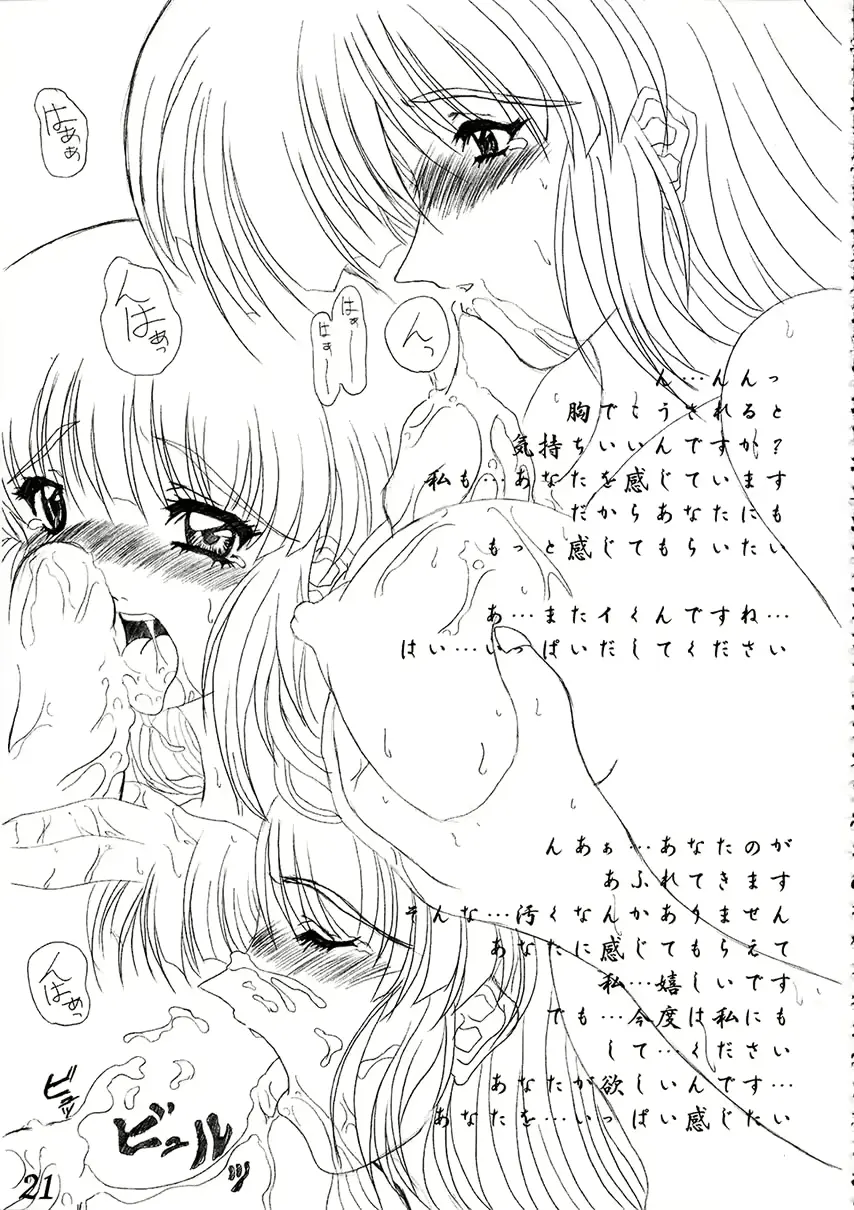 はあぁ
んはぁっ
はぁー
はぁー
んっ
ん…んんっ
胸でこうされると
気持ちいいんですか?
私も…あなたを感じています
だからあなたにも
もっと感じてもらいたい
あ…またイくんですね…
はい…いっぱいだしてください
んあぁ…あなたのが
あふれてきます
そんな…汚くなんかありません
あなたに感じてもらえて
私…嬉しいです
でも…今度は私にも
して…ください
あなたが欲しいんです…
あなたを…いっぱい感じたい
んはあっ
ビュッ
ビュルッ
21